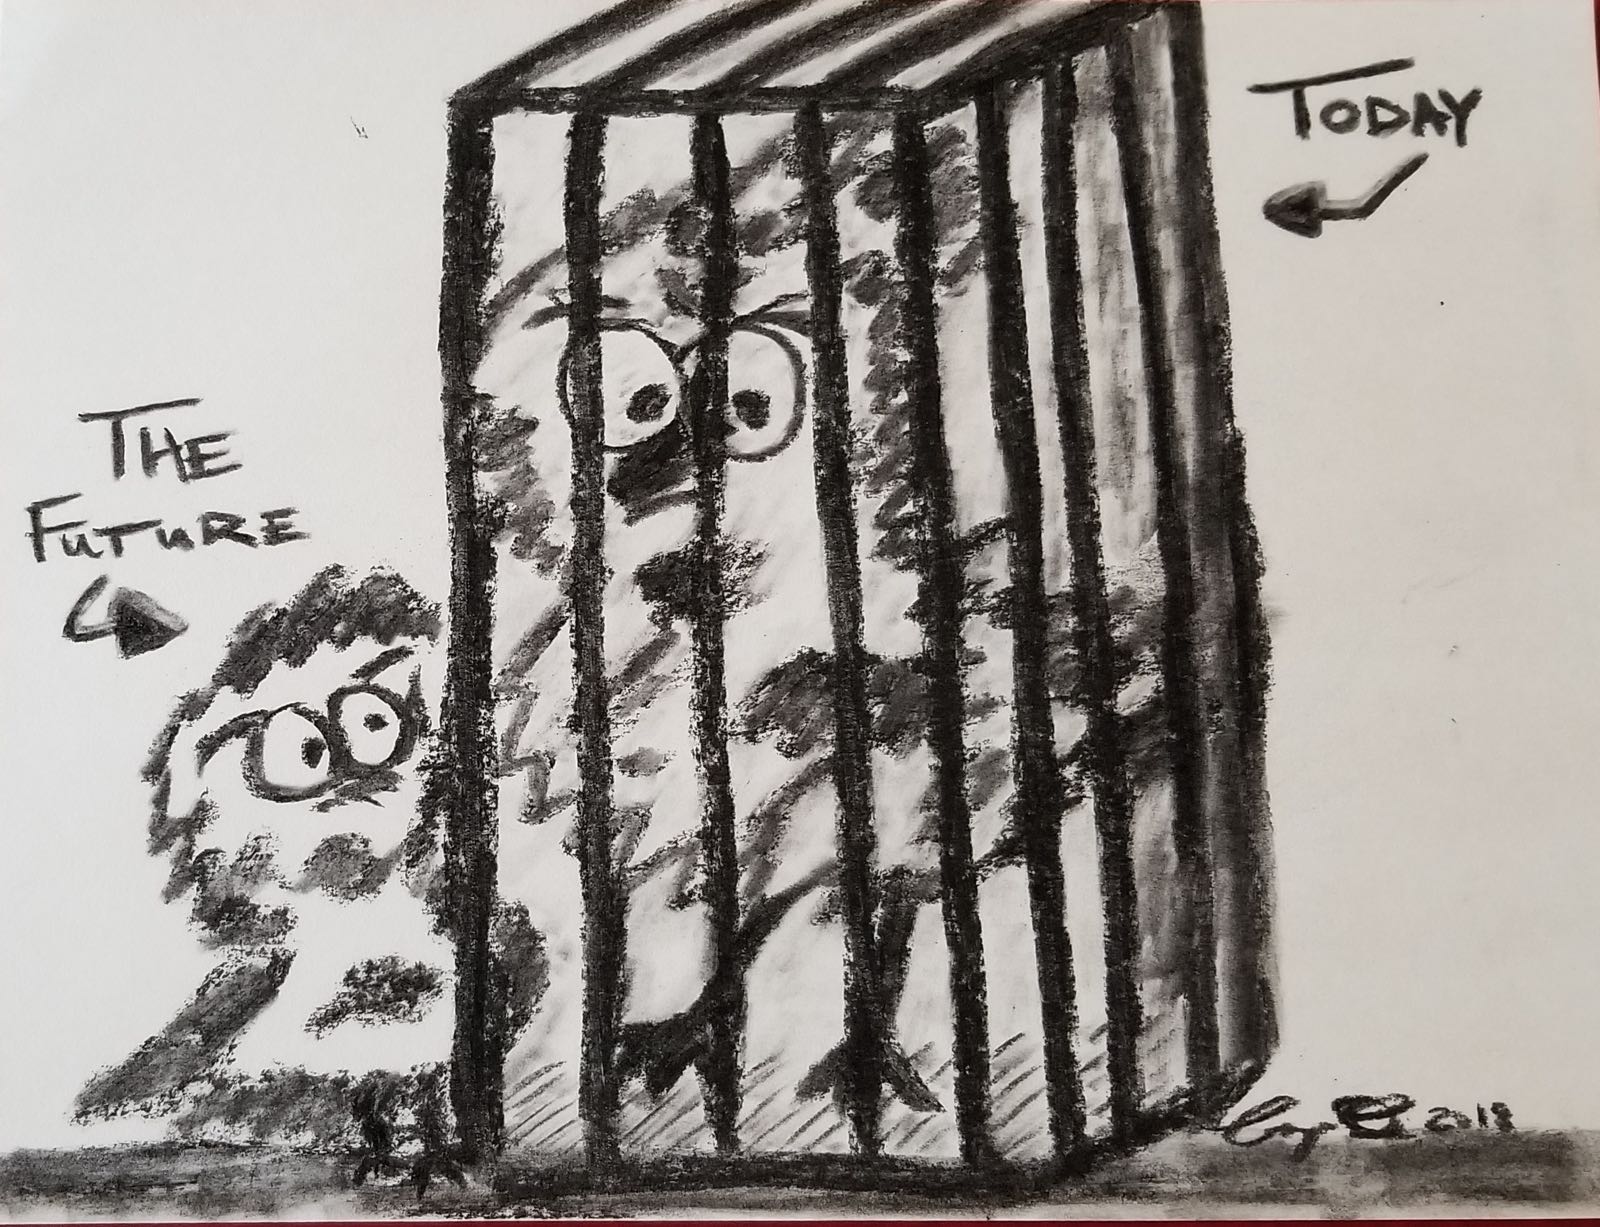 TODAY
THE
FUTURE
2018